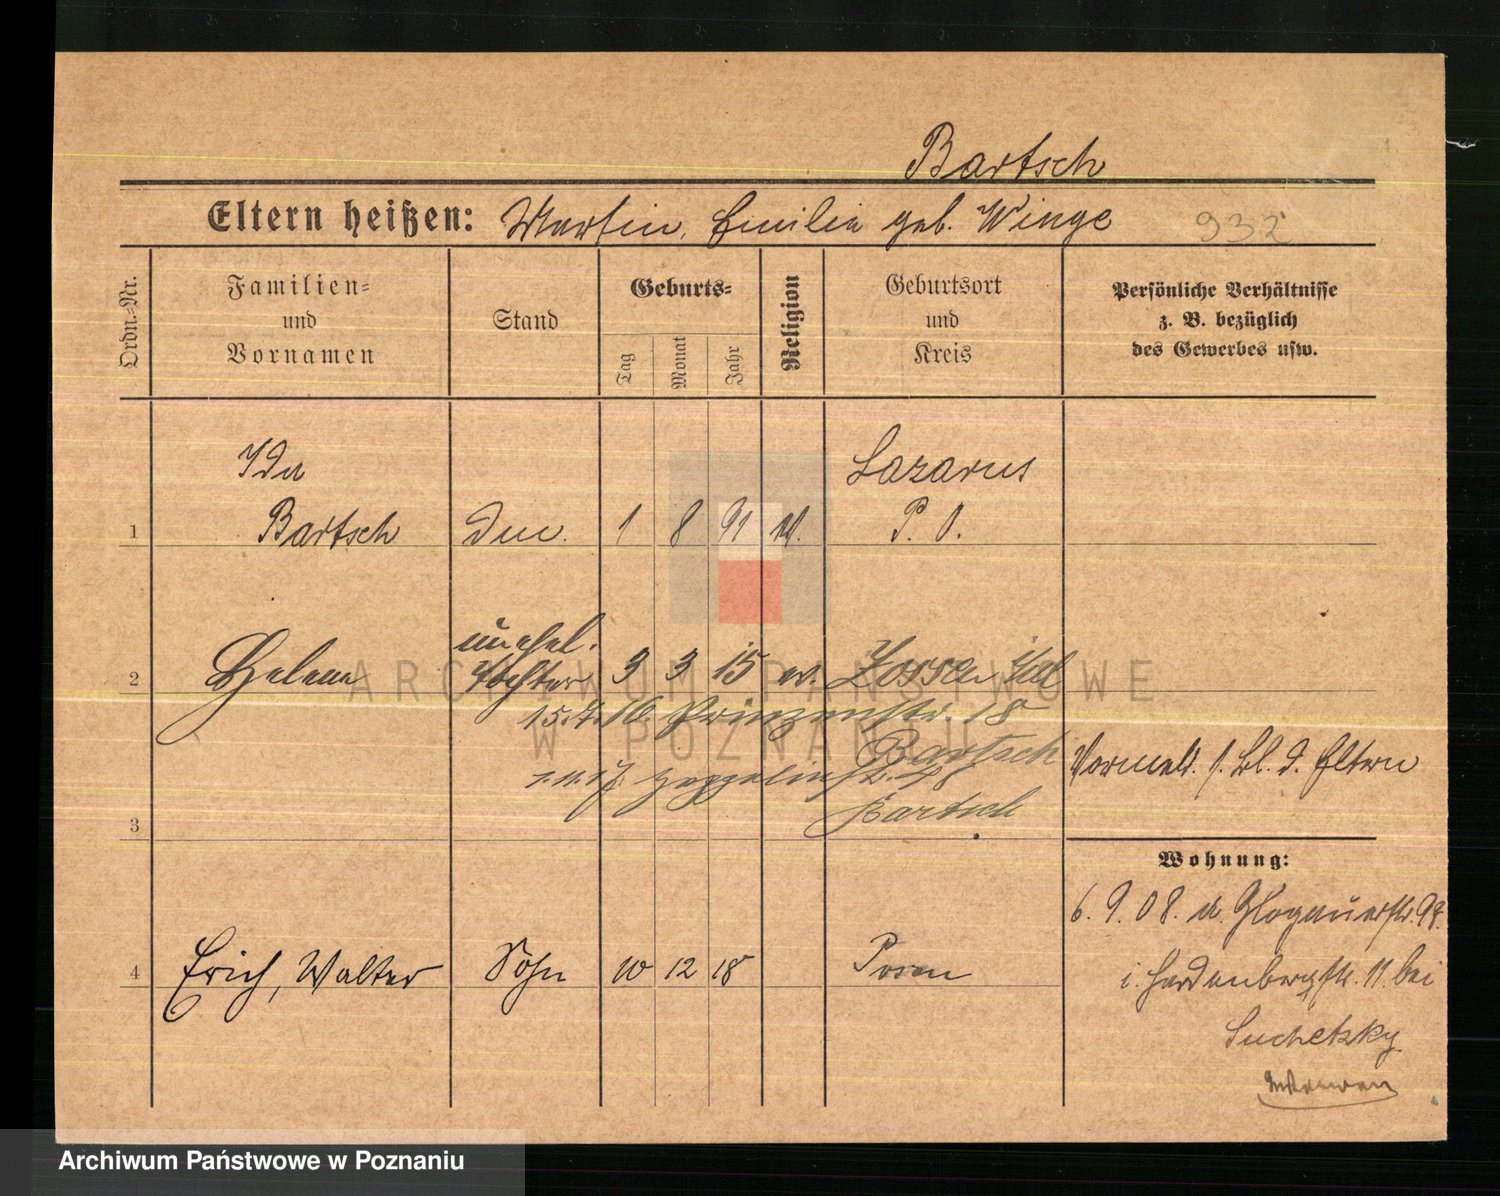 Bartsch
Eltern heißen: Martin, Emilie geb. Winge 932
Ordn.-Nr. Familien- und Vornamen Stand Geburts- Tag Monat Jahr Religion Geburtsort und Kreis Persönliche Verhältnisse z. B. bezüglich des Gewerbes usw.
Ida Lazarus
1 Bartsch 1 8 91 P. O.
unehel.
2 Helene Tochter 3 3 15 ev. Zossen
15. 7. 16. Prinzenstr. 18
Bartsch
Vormeld. s. Bl. d. Eltern
Zeppelinstr.
Bartsch
3
Wohnung:
6. 9. 08. a. Glogauerstr.
4 Erich, Walter Sohn 10 12 18 Posen
i. Hardenbergstr. 11. bei
Suchetzky
ARCHIWUM PAŃSTWOWE
W POZNANIU
Archiwum Państwowe w Poznaniu